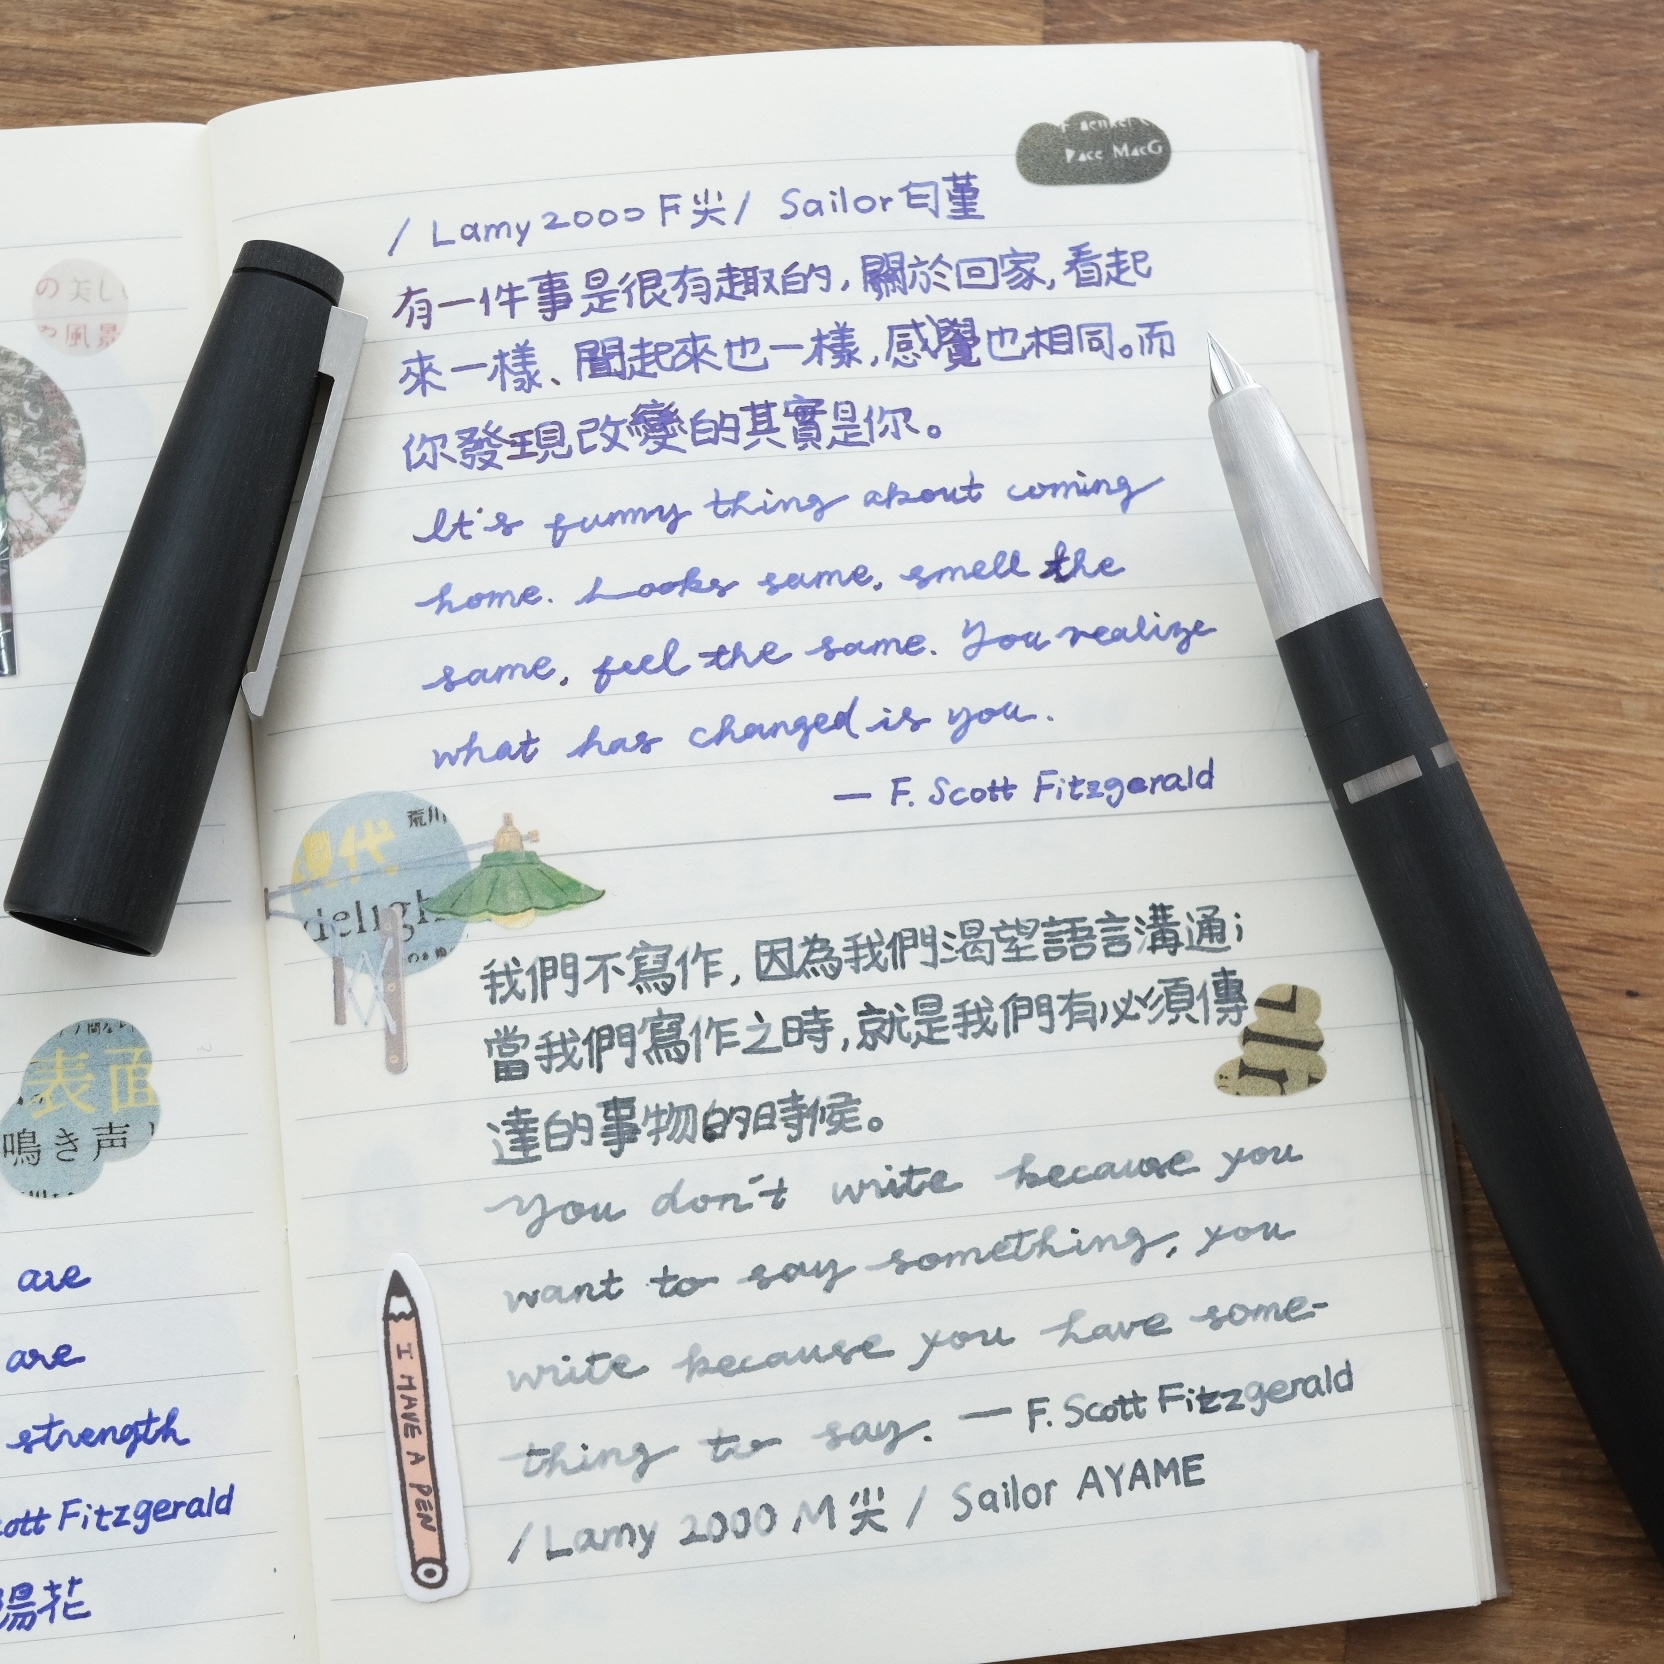 / Lamy 2000 F尖 / Sailor 匂菫
有一件事是很有趣的,關於回家,看起
來一樣、聞起來也一樣,感覺也相同。而
你發現改變的其實是你。
It's funny thing about coming
home. Looks same, smell the
same, feel the same. You realize
what has changed is you.
— F. Scott Fitzgerald
我們不寫作,因為我們渴望語言溝通;
當我們寫作之時,就是我們有必須傳
達的事物的時候。
You don't write because you
want to say something, you
write because you have some-
thing to say. — F. Scott Fitzgerald
/ Lamy 2000 M尖 / Sailor AYAME
I HAVE A PEN
delight
荒川
現代
Face MacG
の美し
風景
表面
鳴き声
are
are
strength
cott Fitzgerald
陽花